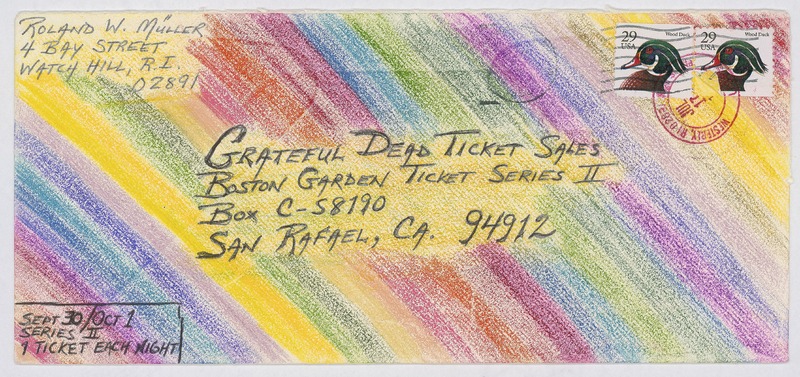 ROLAND W. MÜLLER
4 BAY STREET
WATCH HILL, R.I.
02891
29
USA
Wood Duck
29
USA
Wood Duck
JUL
17
GRATEFUL DEAD TICKET SALES
BOSTON GARDEN TICKET SERIES II
BOX C-S8190
SAN RAFAEL, CA. 94912
SEPT 30/OCT 1
SERIES II
1 TICKET EACH NIGHT